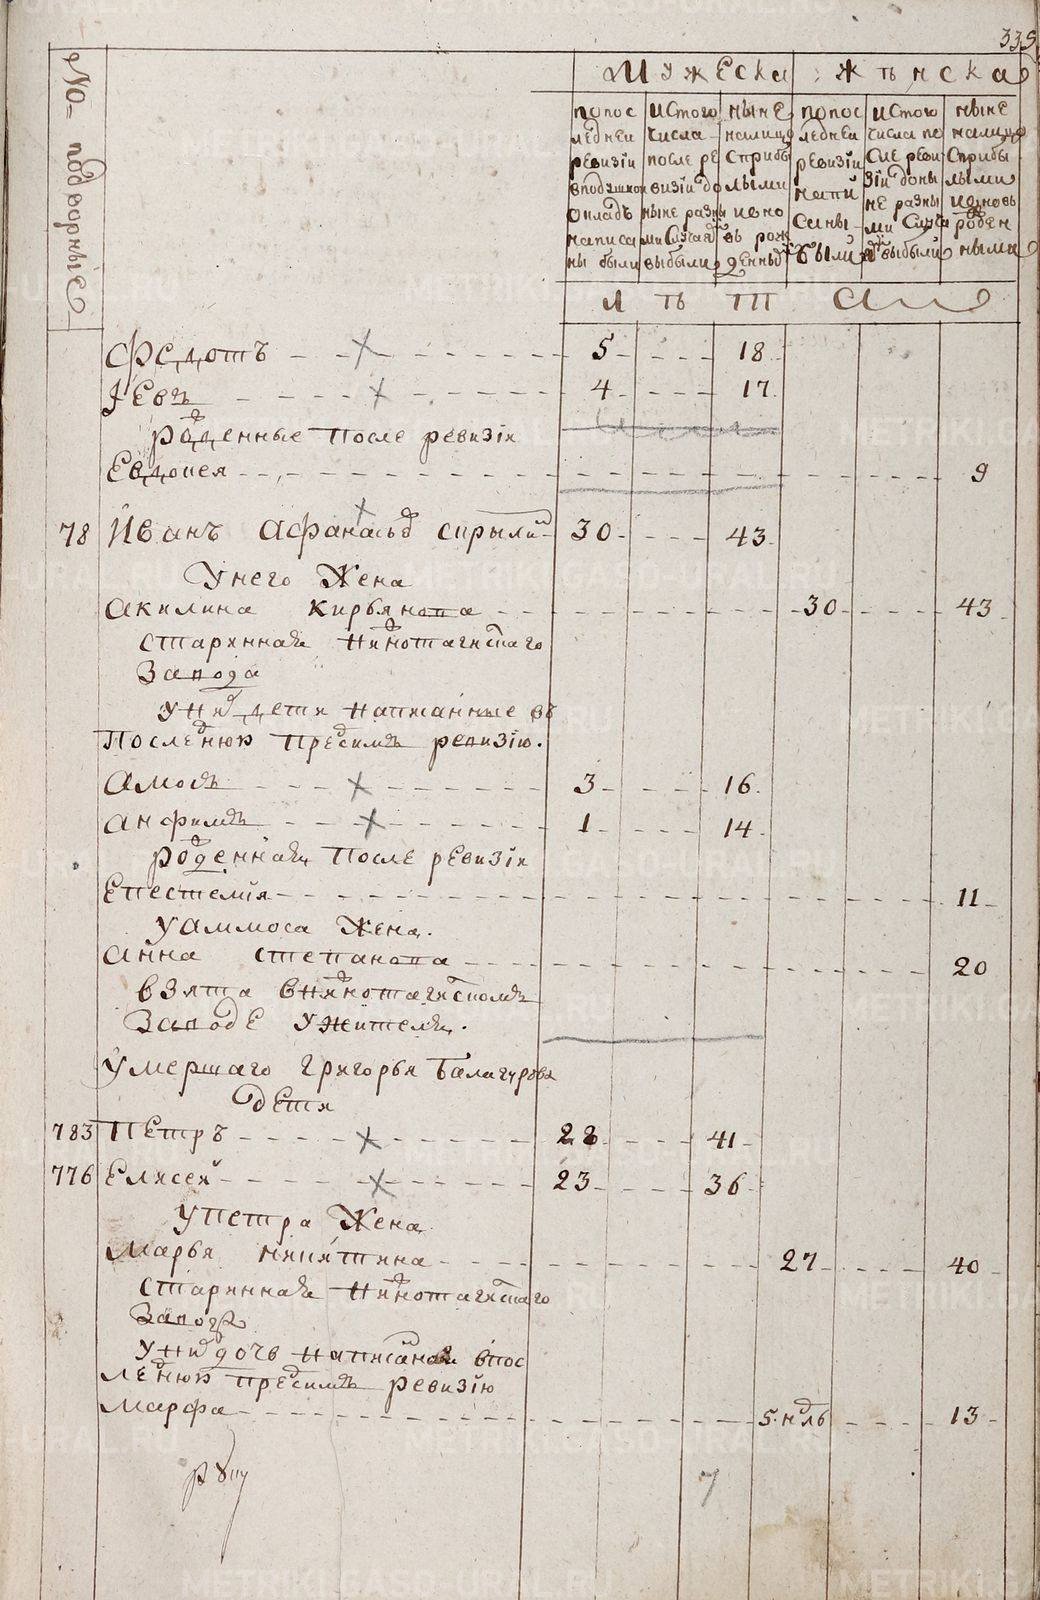 335
№ подворные
Мужеска женска
по пос
ледней
ревизии
в подушном
окладъ
написа
ны были
ис того
числа
после ре
визіи до
ныне разны
ми случаи
выбыли
ныне
налицо
с прибы
лыми
и вно
въ рож
денны
по пос
ледней
ревизіи
напи
саны
были
ис того
числа по
сле реви
зіи до ны
не разны
ми случа
выбыли
ныне
налицо
с прибы
лыми
и вновь
рожден
ными
л ѣ т а
Федотъ 5 18
Иевъ 4 17
рожденные после ревизіи
Евдокея 9
78 Иванъ Афанасьевъ 30 43
у него Жена
Акилина Кирьянова 30 43
старинная Нижнотагилскаго
завода
у них дети написанные въ
последнюю пред симъ ревизію.
Амосъ 3 16
Анфимъ 1 14
рожденная после ревизіи
Епестемія 11
у Аммоса Жена.
Анна Степанова 20
взята в Нижнотагилскомъ
заводе у жителя.
умершаго Григорья Балагурова
дети
783 Петръ 28 41
776 Елисей 23 36
у Петра Жена
Марья Никитина 27 40
старинная Нижнотагилскаго
завода
у них дочь написаная в пос
леднюю пред симъ ревизію
Марфа 5 нѣдль 13
7
METRIKI.GASO-URAL.RU